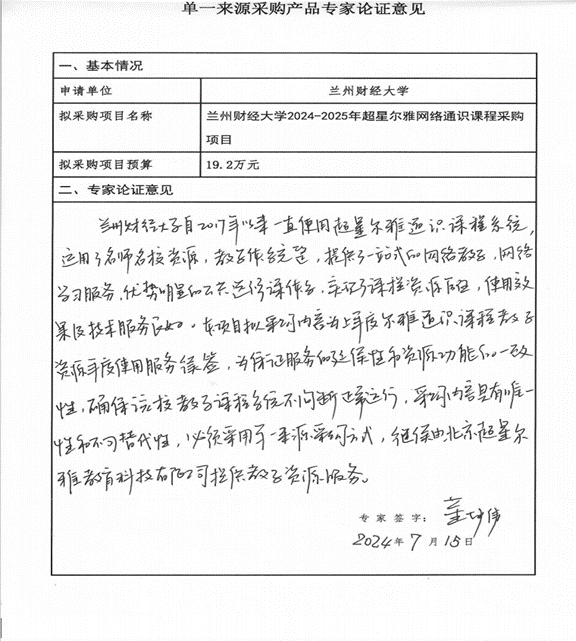 单一来源采购产品专家论证意见
一、基本情况
申请单位 兰州财经大学
拟采购项目名称 兰州财经大学2024-2025年超星尔雅网络通识课程采购
项目
拟采购项目预算 19.2万元
二、专家论证意见
兰州财经大学自2017年以来一直使用超星尔雅通识课程系统，
运用了名师名校资源，教学体系完整，提供了一站式的网络教学，网络
学习服务，优势明显的公共选修课体系，实证了课程资源，使用效
果及技术服务良好。本项目拟采购内容为上年度尔雅通识课程教学
资源年度使用服务续签，为保证服务的延续性和资源功能的一致
性，确保该校教学课程系统不间断正常运行，采购内容具有唯一
性和不可替代性，必须采用单一来源采购方式，继续由北京超星尔
雅教育科技有限公司提供教学资源服务。
专家签字：
2024年7月15日